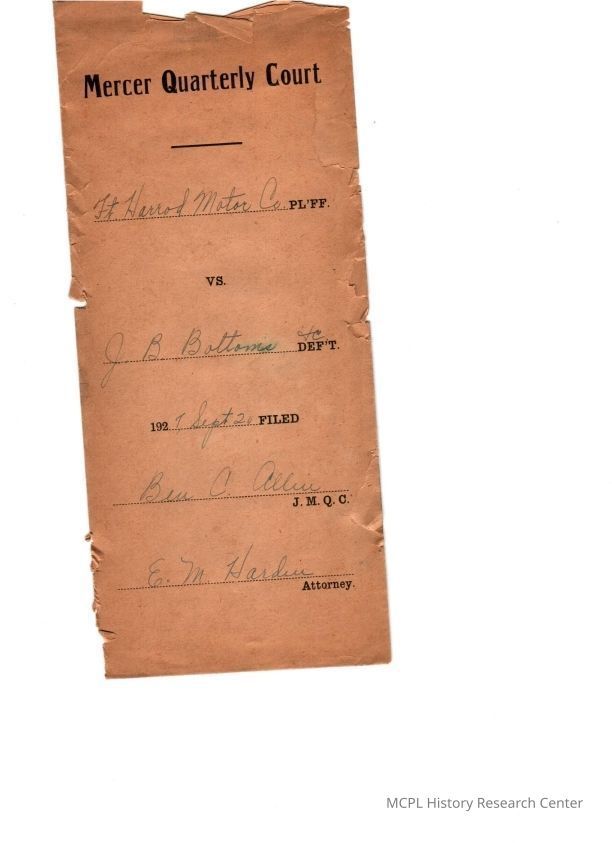 Mercer Quarterly Court
Ft Harrod Motor Co. PL'FF.
VS.
J B Bottoms &c DEF'T.
1927 Sept 20 FILED
Ben C. Allin
J. M. Q. C.
E. M. Hardin
Attorney.
MCPL History Research Center